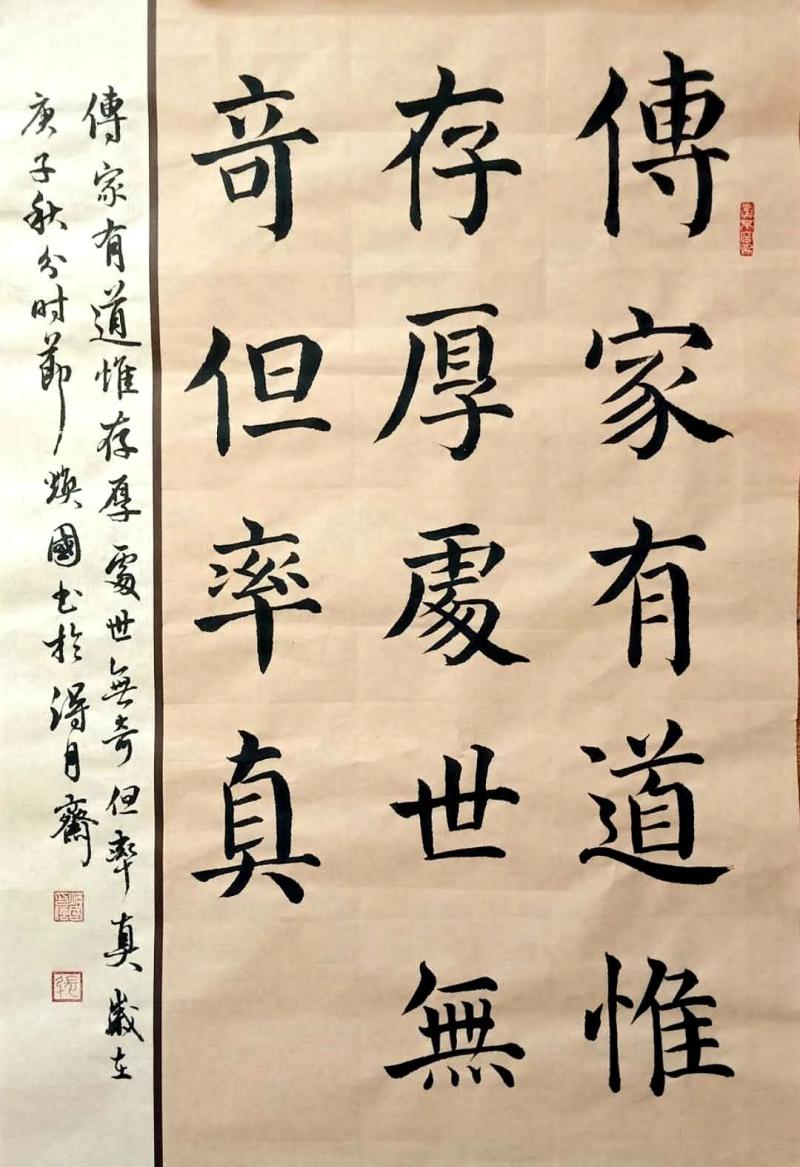 傳家有道惟
存厚處世無
奇但率真
傳家有道惟存厚處世無奇但率真歲在
庚子秋分时節煥國书於得月齋